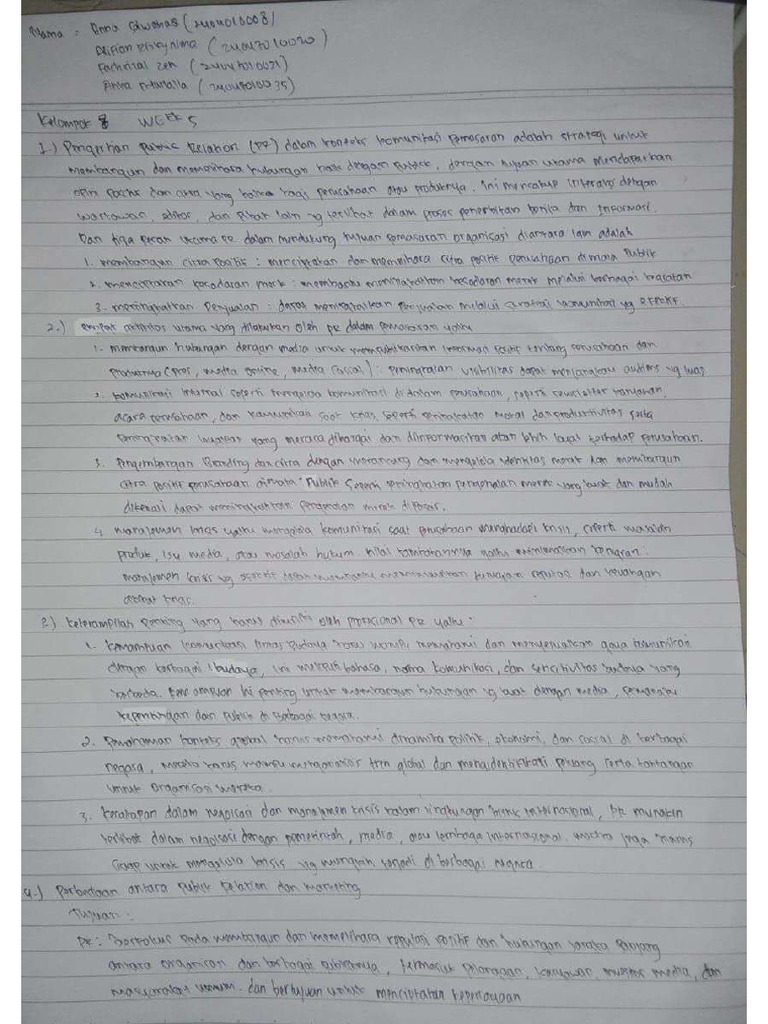 Nama : Anna
Kelompok 8 WEEK 5
1.) Pengertian Public Relation (PR) dalam konteks komunikasi pemasaran adalah strategi untuk
membangun dan memelihara hubungan baik dengan publik, dengan tujuan utama mendapatkan
opini dan citra yang bagi perusahaan atau produknya. Ini mencakup interaksi dengan
wartawan, editor, dan pihak lain yg terlibat dalam proses penerbitan berita dan informasi.
Dan tiga peran utama PR dalam mendukung tujuan pemasaran organisasi diantara lain adalah
1. membangun citra positif : menciptakan dan memelihara citra positif perusahaan dimata Publik
2. menciptakan kesadaran merk : membantu meningkatkan kesadaran merek melalui berbagai kegiatan
3. meningkatkan Penjualan : dapat meningkatkan penjualan melalui strategi komunikasi yg efektif.
2.) empat aktivitas utama yang dilakukan oleh PR dalam pemasaran yaitu
1. membangun hubungan dengan media untuk mempublikasikan informasi positif tentang perusahaan dan
produknya (pers, media online, media sosial) : peningkatan visibilitas dapat menjangkau audiens yg luas
2. komunikasi internal seperti mengelola komunikasi di dalam perusahaan, seperti newsletter karyawan,
acara perusahaan, dan komunikasi saat krisis, seperti peningkatan moral dan produktivitas serta
yang merasa dihargai dan diinformasikan akan lebih loyal terhadap perusahaan.
3. Pengembangan Branding dan citra dengan merancang dan mengelola identitas merek dan membangun
citra positif perusahaan dimata Publik seperti peningkatan pengenalan merek yang kuat dan mudah
dikenali dapat meningkatkan pengenalan merek di pasar.
4. manajemen krisis yaitu mengelola komunikasi saat perusahaan menghadapi krisis, seperti masalah
produk, isu media, atau masalah hukum. nilai tambahannya yaitu meminimalkan kerugian.
manajemen krisis yg efektif dapat membantu meminimalkan kerugian reputasi dan keuangan
akibat krisis.
3.) keterampilan penting yang harus dimiliki oleh profesional PR yaitu :
1. kemampuan komunikasi lintas Budaya harus mampu memahami dan menyesuaikan gaya komunikasi
dengan berbagai budaya, ini meliputi bahasa, norma komunikasi, dan sensitivitas budaya yang
berbeda. kemampuan ini penting untuk membangun hubungan yg kuat dengan media, pemangku
kepentingan dan publik di Berbagai negara.
2. Pemahaman konteks global harus memahami dinamika politik, ekonomi, dan sosial di berbagai
negara, mereka harus mampu menganalisis tren global dan mengidentifikasi peluang serta tantangan
untuk organisasi mereka.
3. kecakapan dalam negosiasi dan manajemen krisis dalam lingkungan bisnis internasional, PR mungkin
terlibat dalam negosiasi dengan pemerintah, media, atau lembaga internasional. mereka juga harus
siap untuk mengelola krisis yg mungkin terjadi di berbagai negara
4.) perbedaan antara public relation dan marketing
Tujuan :
PR : Berfokus pada membangun dan memelihara reputasi positif dan hubungan jangka panjang
antara organisasi dan berbagai publiknya, termasuk pelanggan, karyawan, investor, media, dan
masyarakat umum. dan bertujuan untuk menciptakan kepercayaan